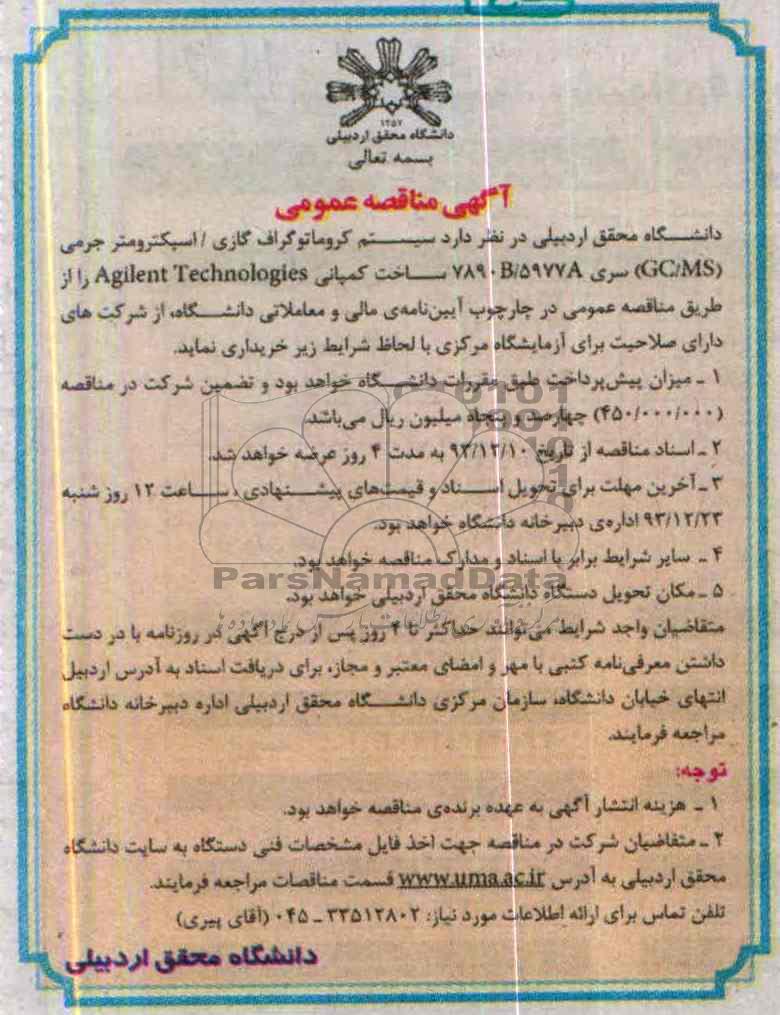 ۱۳۵۷
دانشگاه محقق اردبیلی
بسمه تعالی
آگهی مناقصه عمومی
دانشگاه محقق اردبیلی در نظر دارد سیستم کروماتوگراف گازی / اسپکترومتر جرمی
(GC/MS) سری ۷۸۹۰B/۵۹۷۷A ساخت کمپانی Agilent Technologies را از
طریق مناقصه عمومی در چارچوب آیین‌نامه‌ی مالی و معاملاتی دانشگاه، از شرکت های
دارای صلاحیت برای آزمایشگاه مرکزی با لحاظ شرایط زیر خریداری نماید.
۱ ـ میزان پیش‌پرداخت طبق مقررات دانشگاه خواهد بود و تضمین شرکت در مناقصه
(۴۵۰/۰۰۰/۰۰۰) چهارصد و پنجاه میلیون ریال می‌باشد.
۲ ـ اسناد مناقصه از تاریخ ۹۳/۱۲/۱۰ به مدت ۴ روز عرضه خواهد شد.
۳ ـ آخرین مهلت برای تحویل اسناد و قیمت‌های پیشنهادی، ساعت ۱۲ روز شنبه
۹۳/۱۲/۲۳ اداره‌ی دبیرخانه دانشگاه خواهد بود.
۴ ـ سایر شرایط برابر با اسناد و مدارک مناقصه خواهد بود.
ParsNamadData
۵ ـ مکان تحویل دستگاه دانشگاه محقق اردبیلی خواهد بود.
متقاضیان واجد شرایط می‌توانند حداکثر تا ۴ روز پس از درج آگهی در روزنامه با در دست
داشتن معرفی‌نامه کتبی با مهر و امضای معتبر و مجاز، برای دریافت اسناد به آدرس اردبیل
انتهای خیابان دانشگاه، سازمان مرکزی دانشگاه محقق اردبیلی اداره دبیرخانه دانشگاه
مراجعه فرمایند.
توجه:
۱ ـ هزینه انتشار آگهی به عهده برنده‌ی مناقصه خواهد بود.
۲ ـ متقاضیان شرکت در مناقصه جهت اخذ فایل مشخصات فنی دستگاه به سایت دانشگاه
محقق اردبیلی به آدرس www.uma.ac.ir قسمت مناقصات مراجعه فرمایند.
تلفن تماس برای ارائه اطلاعات مورد نیاز: ۳۳۵۱۲۸۰۲ ـ ۰۴۵ (آقای پیری)
دانشگاه محقق اردبیلی